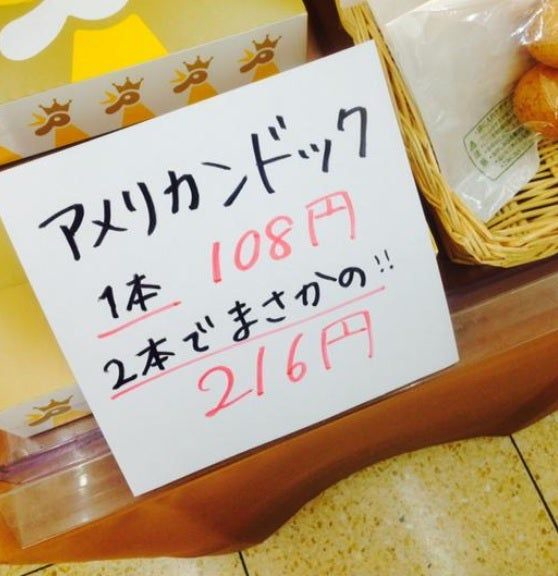 アメリカンドック
1本 108円
2本でまさかの!!
216円